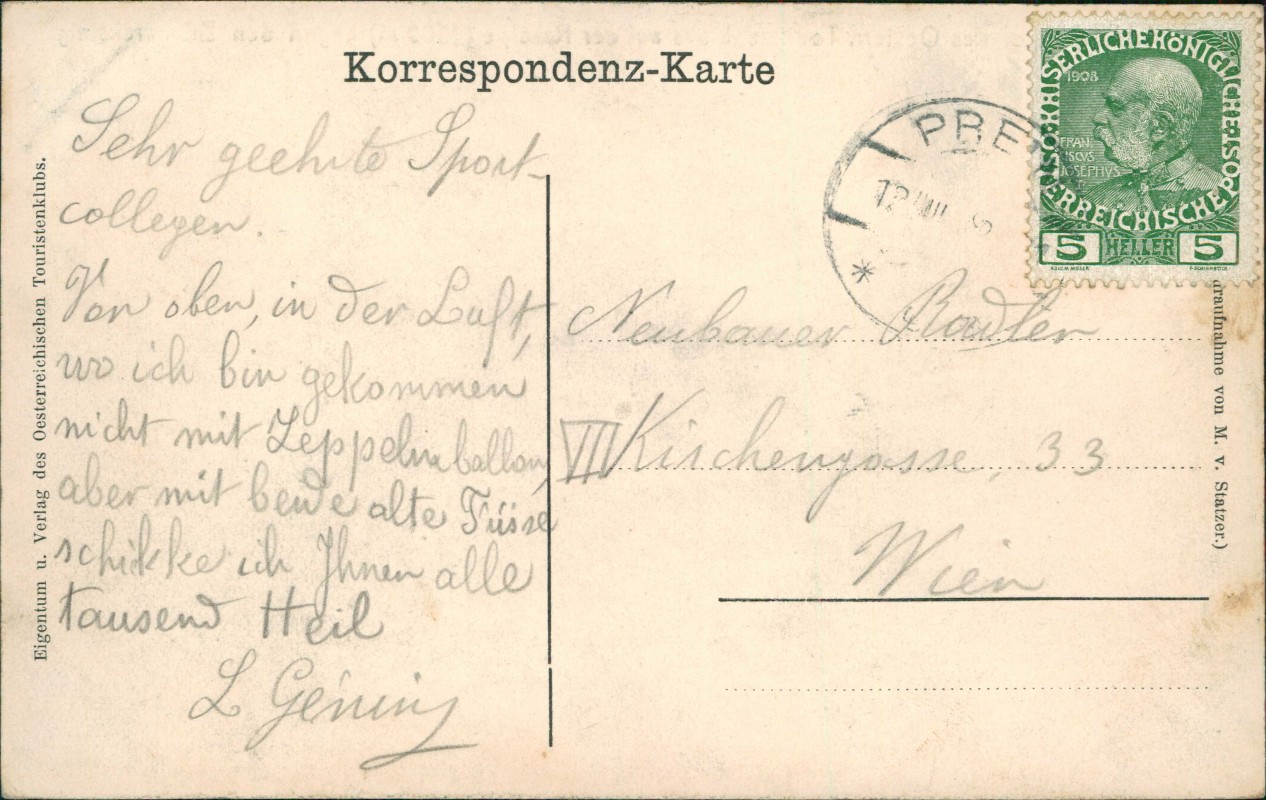 Korrespondenz-Karte
Sehr geehrte Sport-
collegen.
Von oben, in der Luft,
wo ich bin gekommen
nicht mit Zeppelin ballon,
aber mit beide alte Füsse
schikke ich Ihnen alle
tausend Heil
L
Eigentum u. Verlag des Oesterreichischen Touristenklubs.
PRE
12 VIII
KAISERLICHE KÖNIGLICHE
ÖSTERREICHISCHE POST
1908
FRAN
CISCVS
IOSEPHVS
I
5 HELLER 5
Neubauer Radler
VII Kirchengasse, 33
Wien
draufnahme von M. v. Statzer.)